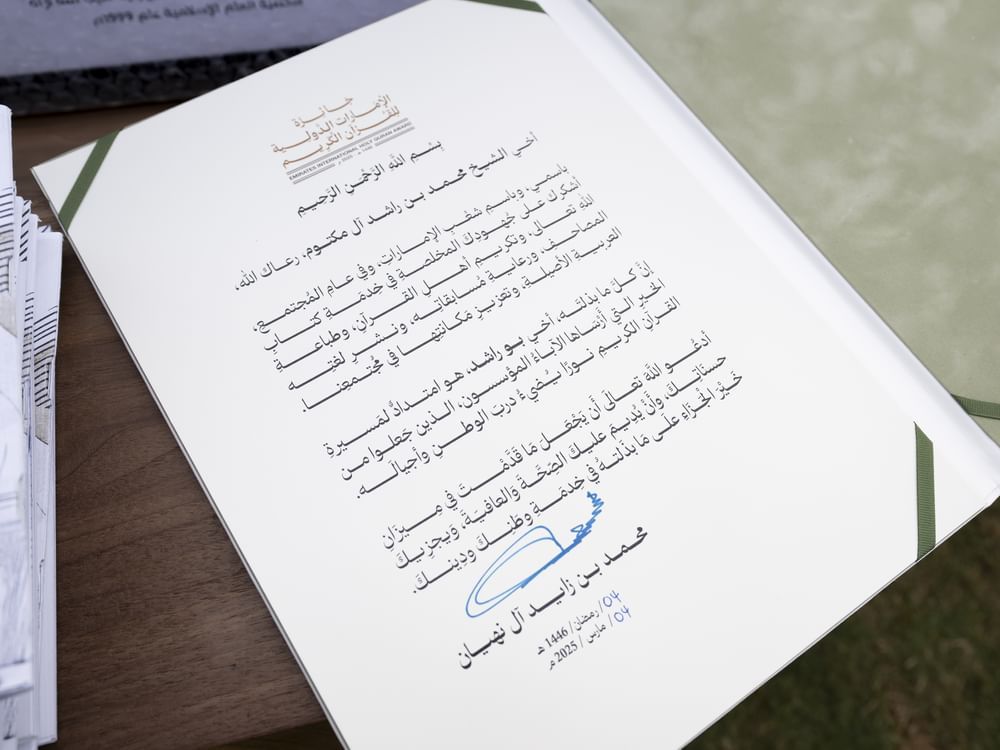 شخصية العام الإسلامية عام 1999م
جائزة
الإمارات الدولية
للقرآن الكريم
EMIRATES INTERNATIONAL HOLY QURAN AWARD
1446 هـ - 2025 م
بِسْمِ اللهِ الرَّحْمٰنِ الرَّحِيمِ
أخي الشيخ محمد بن راشد آل مكتوم، رعاك الله،
باسمي، وباسمِ شعبِ الإماراتِ، وفي عام المُجتمعِ،
أشكرك على جُهودِكَ المخلصةِ في خدمَةِ كتابِ
اللهِ تعالى، وتكريمِ أهلِ القرآنِ، وطباعةِ
المصاحفِ، ورعايةِ مُسابقاتِه، ونشرِ لغتِه
العربيةِ الأصيلةِ، وتعزيزِ مَكانتِها في مُجتمعِنا.
إنَّ كلَّ ما بذلتَه، أخي بو راشد، هو امتدادٌ لمَسيرةِ
الخيرِ التي أرساها الآباءُ المؤسسون، الذين جَعلوا من
القرآنِ الكريمِ نورًا يُضيءُ دربَ الوطنِ وأجيالَه.
أدعُو اللهَ تعَالَى أن يَجْعَلَ مَا قَدَّمْتَ في مِيزَانِ
حسنَاتِكَ، وأَنْ يُدِيمَ عليكَ الصِّحَّةَ وَالعافيةَ، وَيجزيكَ
خَيْرَ الجْزَاءِ علَى مَا بذَلتَهُ في خِدمَةِ وطَنِكَ ودِينِكَ.
محمد بن زايد آل نهيان
04/ رمضان / 1446 هـ
04/ مارس / 2025 م